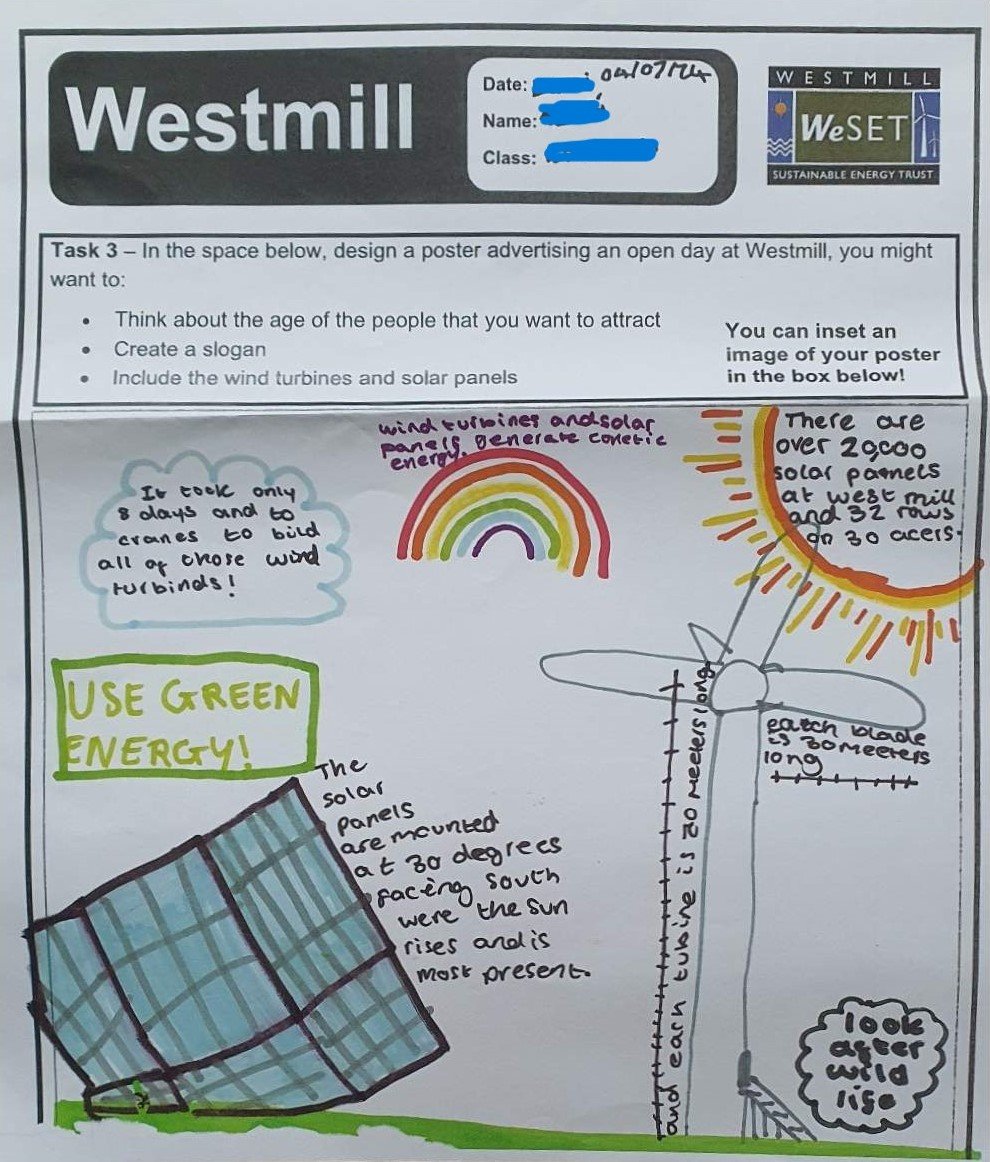 Westmill
Date: 04/07/24
Name:
Class:
WESTMILL
WeSET
SUSTAINABLE ENERGY TRUST
Task 3 – In the space below, design a poster advertising an open day at Westmill, you might
want to:
• Think about the age of the people that you want to attract
• Create a slogan
• Include the wind turbines and solar panels
You can inset an
image of your poster
in the box below!
wind turbines and solar
panels generate conetic
energy.
There are
over 20,000
solar pamels
at west mill
and 32 rows
on 30 acers.
It took only
8 days and to
cranes to bild
all of those wind
turbinds!
USE GREEN
ENERGY!
The
solar
panels
are mounted
at 30 degrees
facing south
were the sun
rises and is
most present.
eatch blade
is 30 meeters
long
and each turbine is 20 meeters long
look
after
wild
life